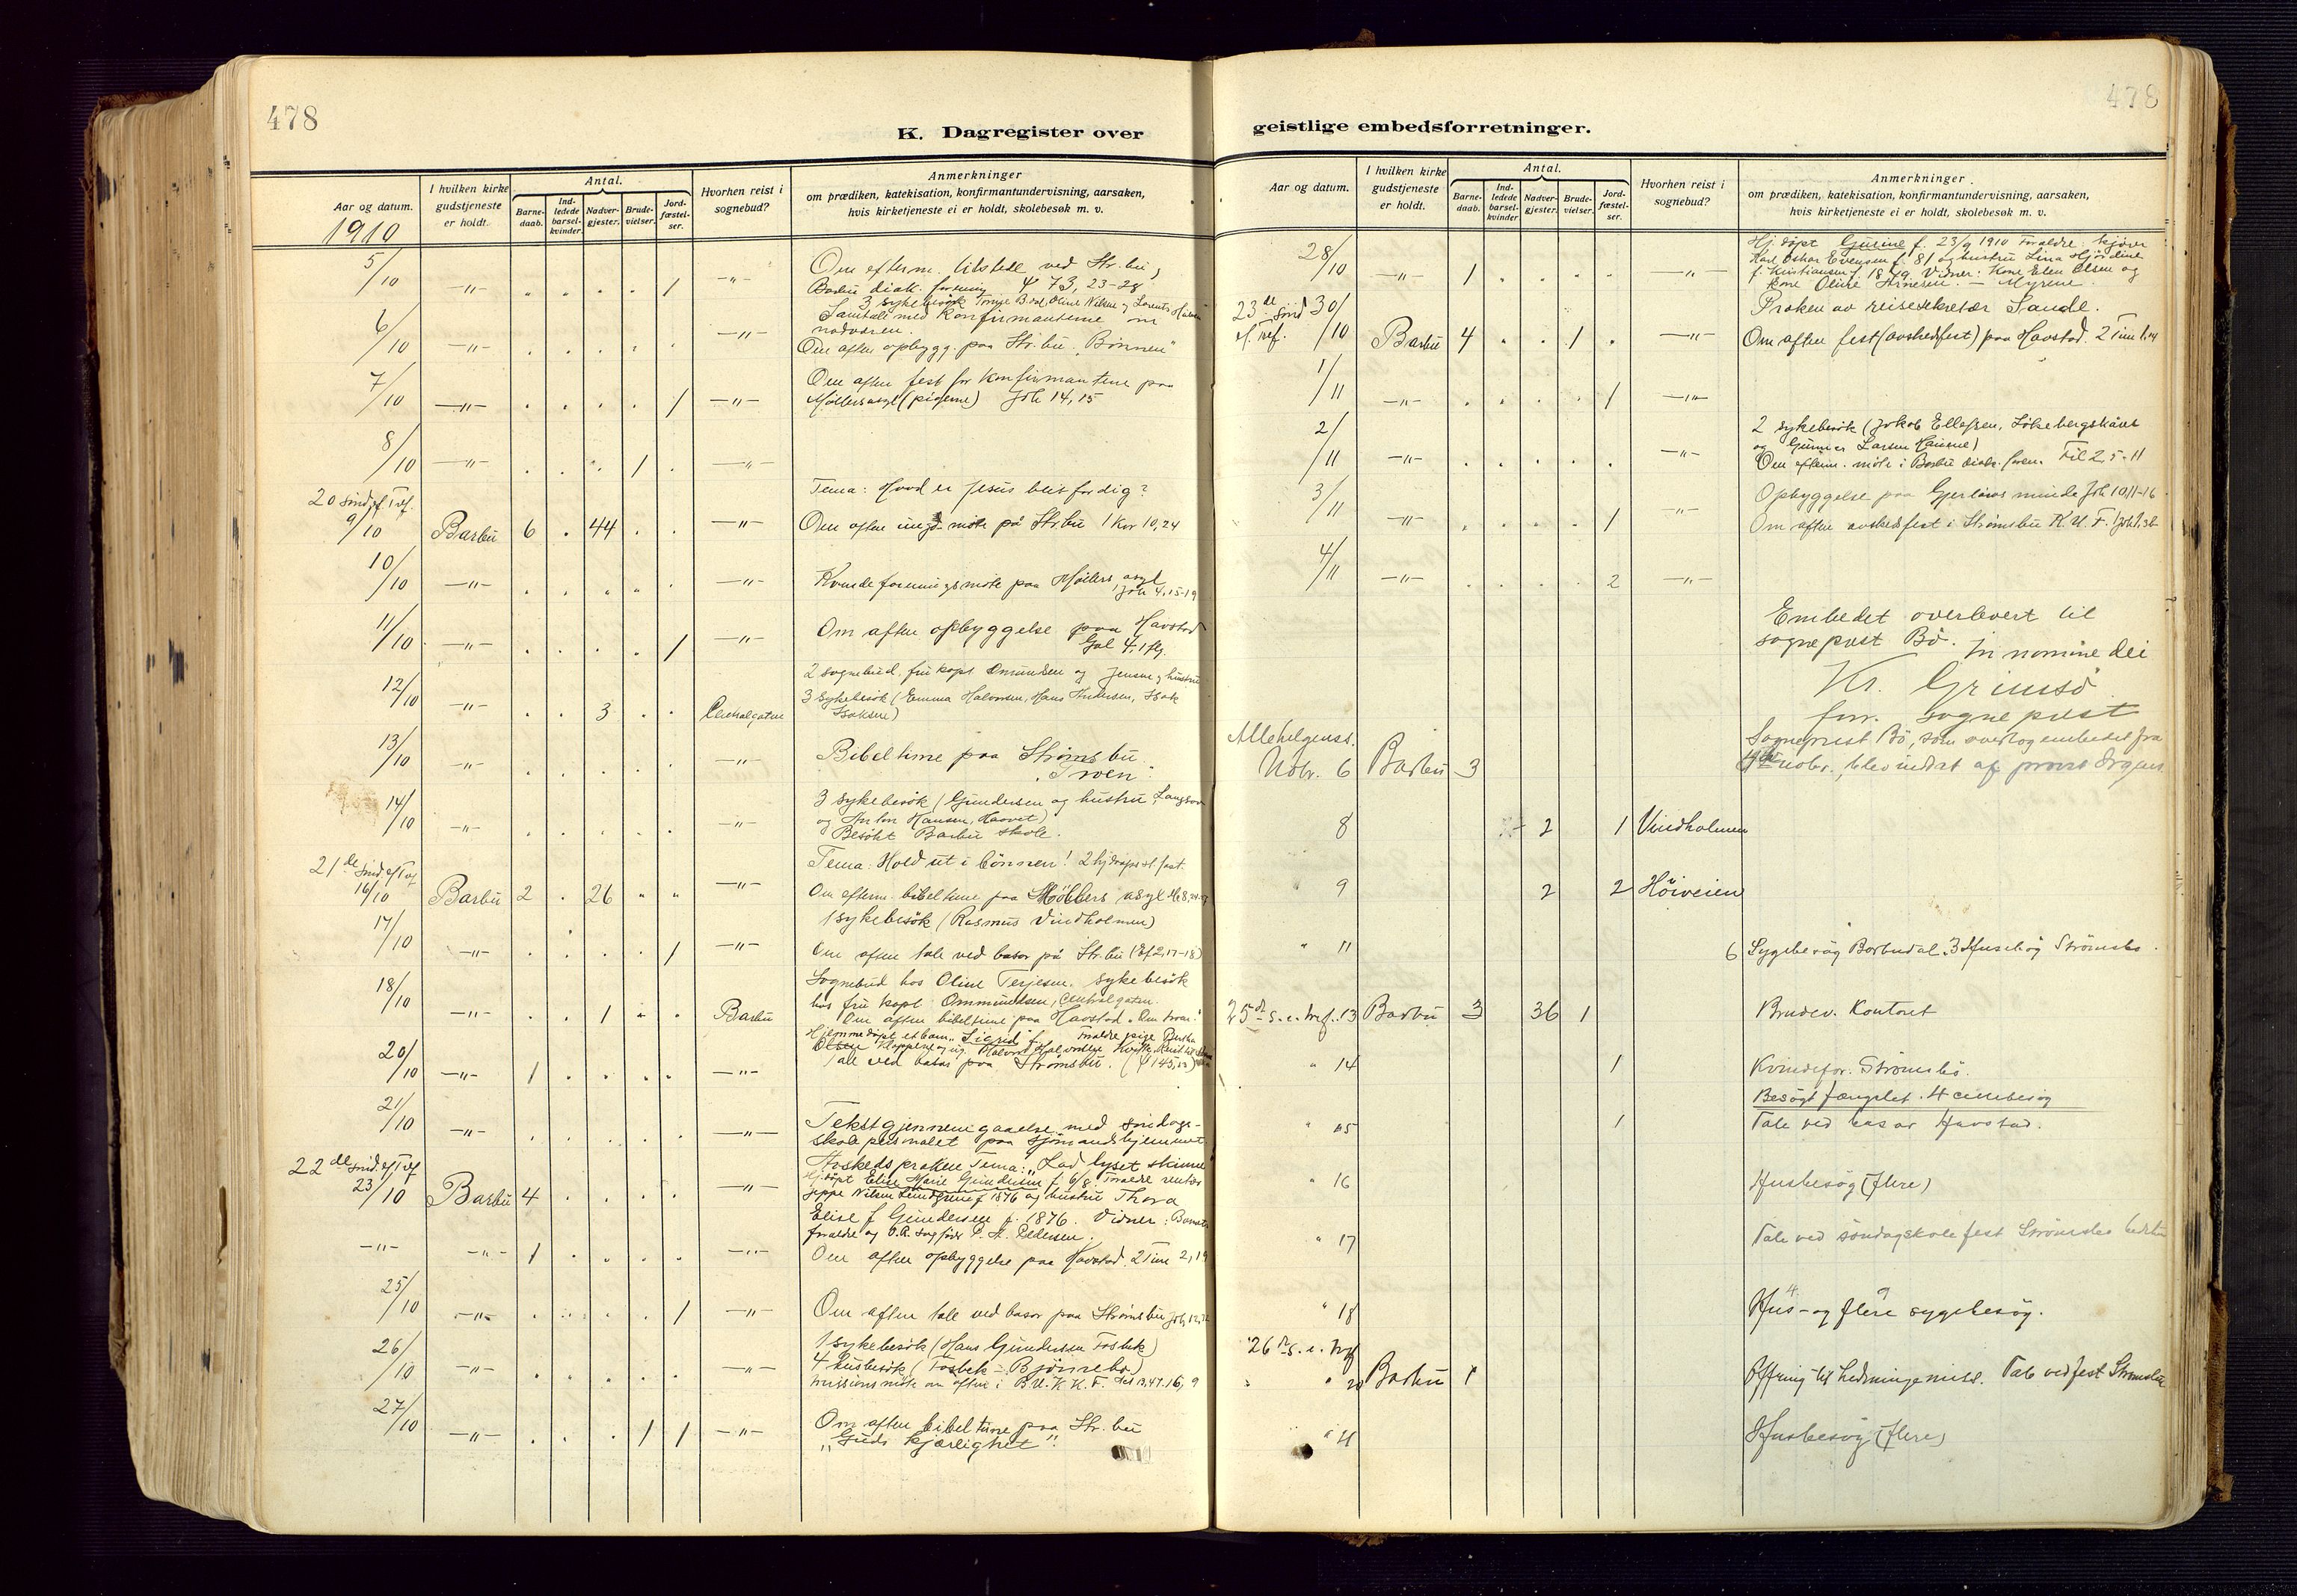 478
K. Dagregister over
Aar og datum.
1910
I hvilken kirke gudstjeneste er holdt.
Antal.
Barne-daab.
Ind-ledede barsel-kvinder.
Nadver-gjester.
Brude-vielser.
Jord-fæstel-ser.
Hvorhen reist i sognebud?
Anmerkninger
om prædiken, katekisation, konfirmantundervisning, aarsaken,
hvis kirketjeneste ei er holdt, skolebesøk m. v.
5/10 —"— . . . . 1 —"—
Om efterm. tilstede ved Str.bu,
Barbu diak. forening ψ 73, 23-28
3 sykebesök
6/10 —"— . . . . . . —"—
Samtale med Konfirmanterne om
nadveren.
Om aften opbygg. paa Str.bu „Bönnen"
7/10 —"— . . . . 1 —"—
Om aften fest for konfirmantene paa
Møllers asyl (pigerne) Joh 14, 15
8/10 —"— . . . 1 . —"—
20 sönd. ef. Tref.
9/10 Barbu 6 . 44 . . —"—
Tema: Hvad er Jesus blit for dig?
Om aften ungd. möte på Str.bu 1 Kor 10,24
10/10 —"— . . . . . —"—
Kvindeforeningsmöte paa Møllers asyl
Joh 4,15-19
11/10 —"— . . . . 1 —"—
Om aften opbyggelse paa Havstad
Gal 4,1 flg.
12/10 —"— . . 3 . . Centralgaten
2 sognebud, fru kapt. Omundsen og Jensen og hustru
3 sykebesök (Emma Halvorsen, Hans Andersen, Isak
Isaksen)
13/10 —"— . . . . . —"—
Bibeltime paa Strömsbu
„Troen".
14/10 —"— . . . . . —"—
3 sykebesök (Gundersen og hustru, Langsæv
og Anton Hansen, Haavet)
Besökt Barbu skole.
21de sönd. ef. Tref
16/10 Barbu 2 . 26 " " —"—
Tema: Hold ut i bönnen! 2 hjdöpte st. fæst.
Om efterm. bibeltime paa Møllers asyl
17/10 —"— . . . . 1 —"—
1 sykebesök (Rasmus Vindholmen)
Om aften tale ved basar på Str.bu (Ef 2,17-18)
18/10 —"— . . 1 " . Barbu
Sognebud hos Oline Terjesen. sykebesök
hos fru kapt. Ommundsen, Centralgaten.
Om aften bibeltime paa Havstad „Om troen"
20/10 —"— 1 . . . . —"—
Hjemmedöpt et barn „Sigrid" f. Foraldre pige Bertha
Tale ved basar paa Strömsbu.
21/10 —"— . . . . . —"—
Tekstgjennemgaaelse med söndags-
skolepersonalet paa sjömandshjemmet
22de sönd. ef. Tref
23/10 Barbu 4 . . . . —"—
Avskedspræken Tema: „Lad lyset skinne
Hj.döpt Elise Marie Gundersen f. 6/8. Foraldre rentier
Jeppe Nilsen Lundgreen f 1876 og hustru Thora
Elise f Gundersen f. 1876. Vidner: Barnets
foraldre og O.R. sagförer P. A. Pedersen.
—"— —"— 1 . . . . —"—
Om aften opbyggelse paa Havstad. 2 Tim 2,19
25/10 —"— . . . . 1 —"—
Om aften tale ved basar paa Strömsbu
26/10 —"— . . . . . —"—
1 sykebesök (Hans Gundersen Fosbek)
4 husbesök (Fosbek - Björnebo)
missionsmöte om aften i B.U.K.K.F.
27/10 —"— . . . 1 1 —"—
Om aften bibeltime paa Str.bu
„Guds kjærlighet".
478
geistlige embedsforretninger.
Aar og datum.
I hvilken kirke gudstjeneste er holdt.
Antal.
Barne-daab.
Ind-ledede barsel-kvinder
Nadver-gjester.
Brude-vielser.
Jord-fæstel-ser.
Hvorhen reist i sognebud?
Anmerkninger
om prædiken, katekisation, konfirmantundervisning, aarsaken,
hvis kirketjeneste ei er holdt, skolebesøk m. v.
28/10 —"— 1 . . . . —"—
Hj.döpt Gusine f. 23/9 1910 Foraldre: kjörer
Karl Oskar Evensen f. 81 og hustru Lina Hjördine
f. Kristiansen f. 1879. Vidner: Kone Elen Olsen og
kone Oline Arnesen. — Myrene.
23de sönd ef. Tref. 30/10 Barbu 4 . . 1 . —"—
Præken av reisesekretær Sande.
Om aften fest (avskedsfest) paa Havstad. 2 Tim 1,14
1/11 —"— . . . . 1 —"—
2/11 —"— . . . . . —"—
2 sykebesök (Jakob Ellefsen, Lökebergskaret
og Gunner Larsen)
Om efterm. möte i Barbu diak. foren. Fil 2 5-11
3/11 —"— . . . . 1 —"—
Opbyggelse paa Gjerlöws minde Joh 10,11-16
Om aften avskedsfest i Strömsbu K.U.F.
4/11 —"— . . . . 2 —"—
Embedet overlevert til
sogneprest Bö. In nomine dei
Kr. Grimsö
forr. sogneprest
Allehelgenss.
Novbr. 6 Barbu 3
Sogneprest Bö, som overtog embedet fra
nobr., blev indsat af provst
8 2 1 Vindholmen
" 9 2 2 Höiveien
" 11 6 Sygebesög Barbudal. 3 Husebesög Strömsbo.
25de s. e. tref. 13 Barbu 3 36 1 Brudev. Kontoret
" 14 1 Kvindefor. Strömsbo.
Besögt fængslet. 4 cellebesög
" 15 1 Tale ved basar Havstad.
" 16 Husbesög (flere)
" 17 Tale ved söndagskolefest Strömsbo bedehus
" 18 Hus- og flere sygebesög.
26de s. e. tref
" " 20 Barbu 1 Offring til hedningemiss. Tale ved fest Strömsbu
" 21 Husbesög (flere)